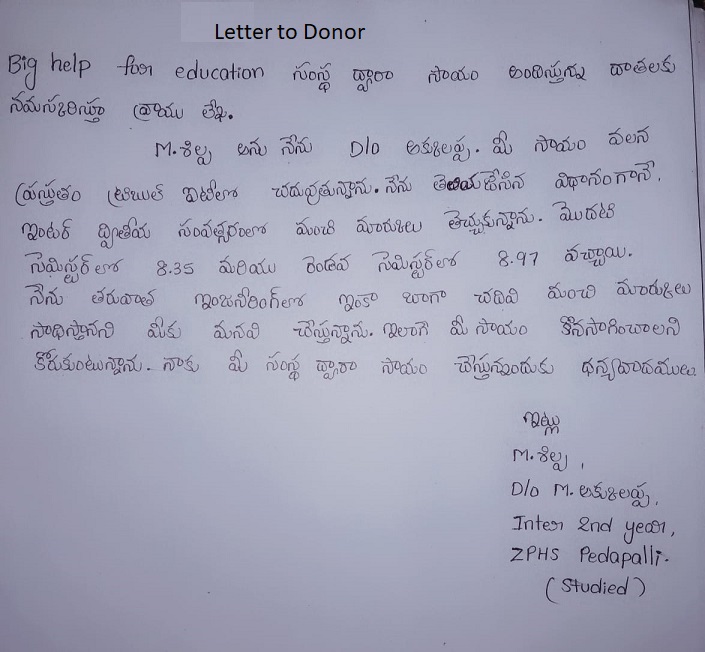 Letter to Donor
Big help for education సంస్థ ద్వారా సాయం అందిస్తున్న దాతలకు
నమస్కరిస్తూ వ్రాయు లేఖ.
M.శిల్ప అను నేను D/o అక్కులప్ప. మీ సాయం వలన
ప్రస్తుతం ట్రిబుల్ ఐటిలో చదువుతున్నాను. నేను తెలియజేసిన విధానంగానే.
ఇంటర్ ద్వితీయ సంవత్సరంలో మంచి మార్కులు తెచ్చుకున్నాను. మొదటి
సెమిస్టర్‌లో 8.35 మరియు రెండవ సెమిస్టర్‌లో 8.97 వచ్చాయి.
నేను తరువాత ఇంజనీరింగ్‌లో ఇంకా బాగా చదివి మంచి మార్కులు
సాధిస్తానని మీకు మనవి చేస్తున్నాను. ఇలాగే మీ సాయం కొనసాగించాలని
కోరుకుంటున్నాను. నాకు మీ సంస్థ ద్వారా సాయం చేస్తున్నందుకు ధన్యవాదములు
ఇట్లు
M.శిల్ప,
D/o M.అక్కులప్ప,
Inter 2nd year,
ZPHS Pedapalli.
(Studied)